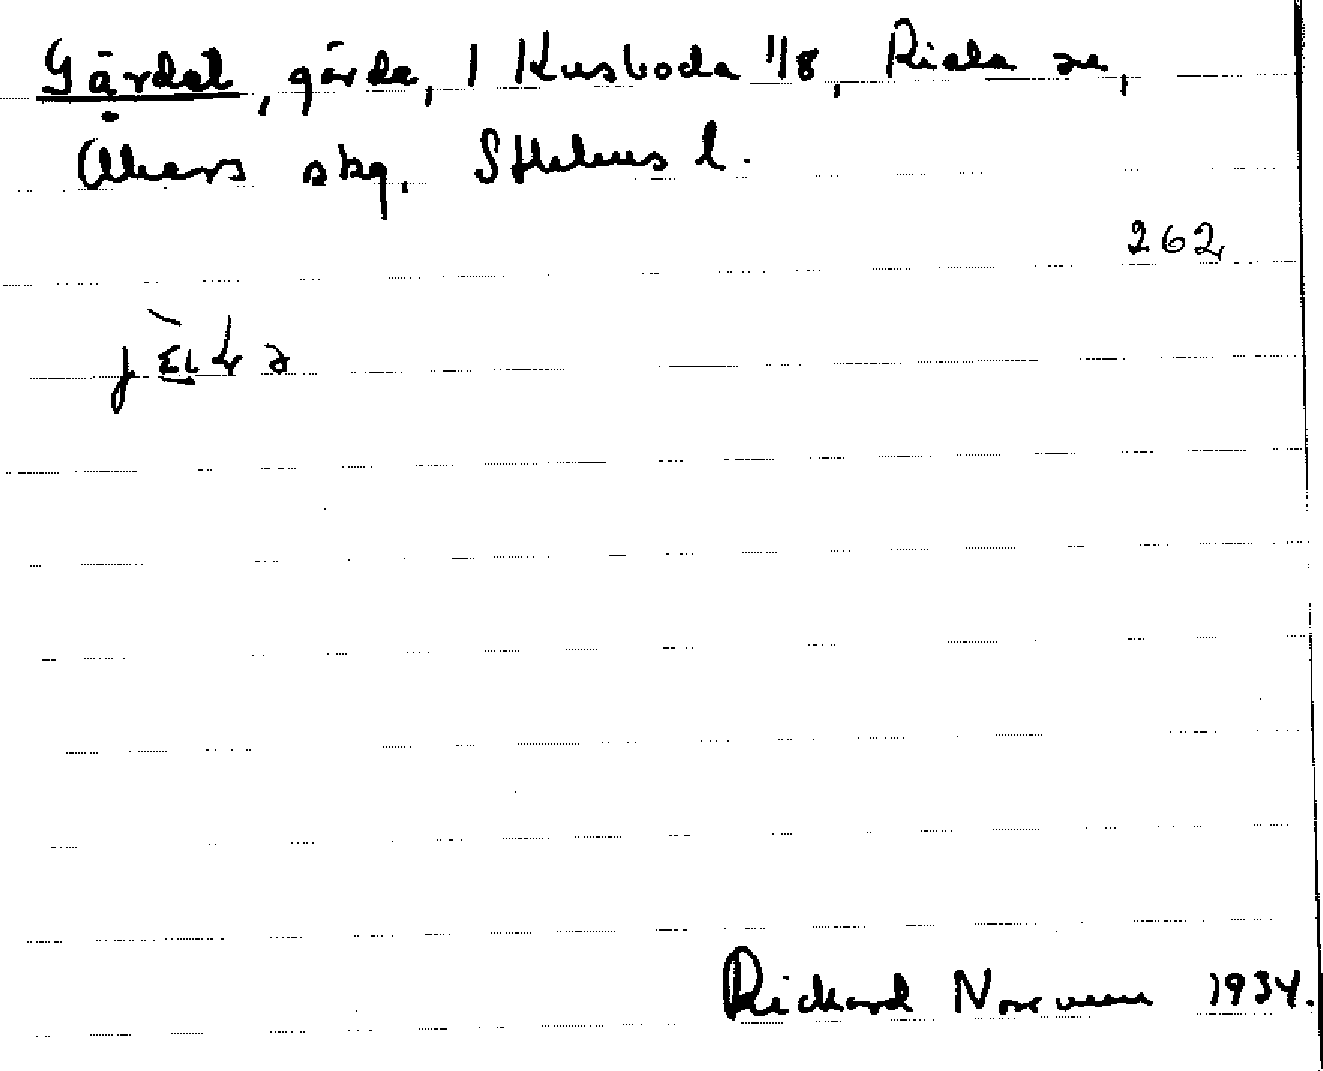 Gärdet, gärde, 1 Kusboda 1/8, Riala sn,
Åkers skg. Sthlms l.
262
Rickard Norman 1934.